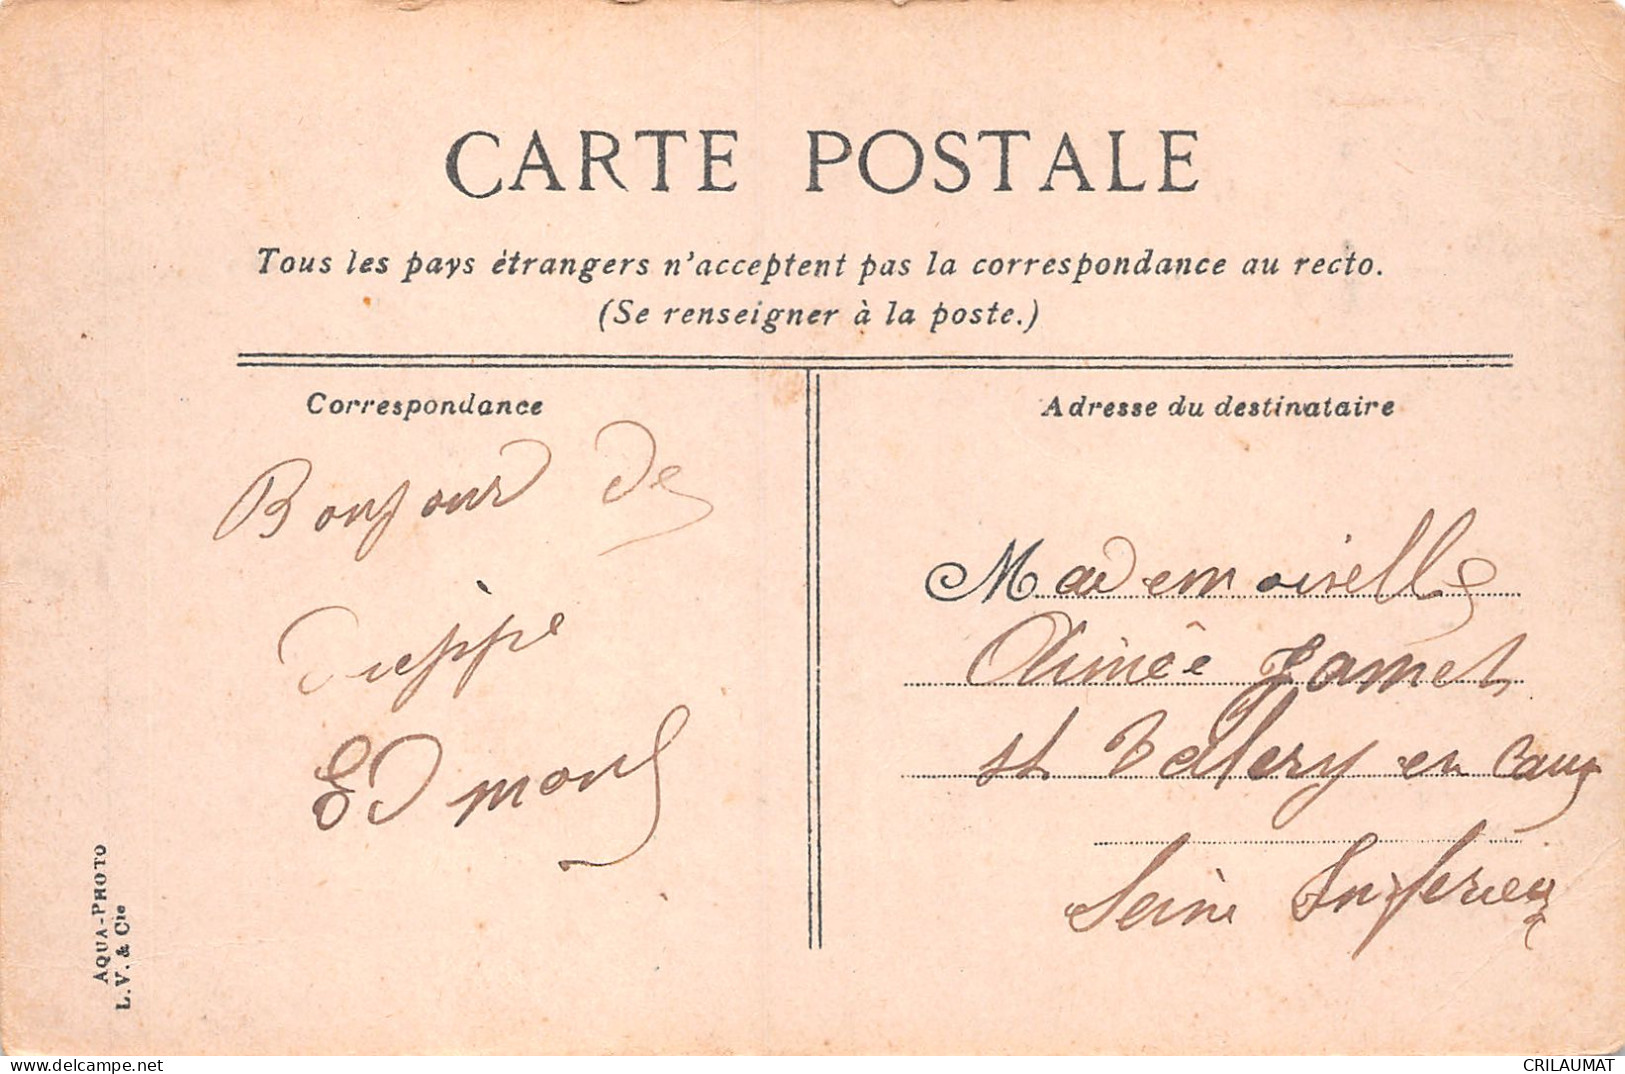 CARTE POSTALE
Tous les pays étrangers n'acceptent pas la correspondance au recto.
(Se renseigner à la poste.)
Correspondance
Bonjour de
Dieppe
Edmond
Adresse du destinataire
Mademoiselle
Aimée Jamet
st Valery en Caux
Seine Inferieu
AQUA-PHOTO
L.V. & Cie
CRILAUMAT